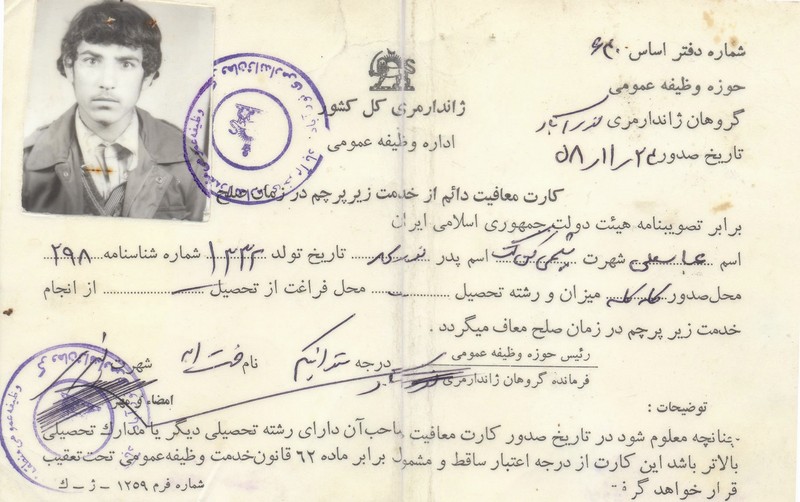 شماره دفتر اساس ۶۴۰۰
حوزه وظیفه عمومی
گروهان ژاندارمری
تاریخ صدور ۵۸/۱۱/۲۴
ژاندارمری کل کشور
اداره وظیفه عمومی
کارت معافیت دائم از خدمت زیر پرچم در زمان صلح
برابر تصویبنامه هیئت دولت جمهوری اسلامی ایران
اسم عباسعلی شهرت اسم پدر تاریخ تولد ۱۳۳۲ شماره شناسنامه ۲۹۸
محل صدور میزان و رشته تحصیل محل فراغت از تحصیل از انجام
خدمت زیر پرچم در زمان صلح معاف میگردد .
رئیس حوزه وظیفه عمومی
فرمانده گروهان ژاندارمری
درجه نام شهرت
امضاء و مهر
توضیحات :
چنانچه معلوم شود در تاریخ صدور کارت معافیت صاحب آن دارای رشته تحصیلی دیگر یا مدارك تحصیلی
بالاتر باشد این کارت از درجه اعتبار ساقط و مشمول برابر ماده ۶۲ قانون خدمت وظیفه عمومی تحت تعقیب
قرار خواهد گرفت
شماره فرم ۱۲۵۹ - ژ - ك